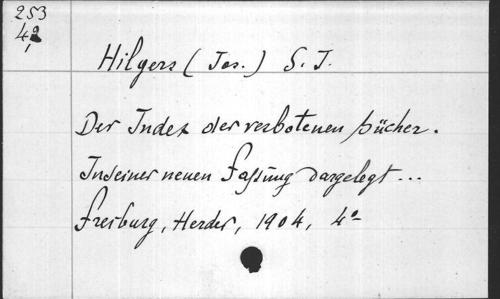 253
4º
Hilgers (Jos.) S. J.
Der Index der verbotenen Bücher.
In seiner neuen Fassung dargelegt ...
Freiburg, Herder, 1904, 4º